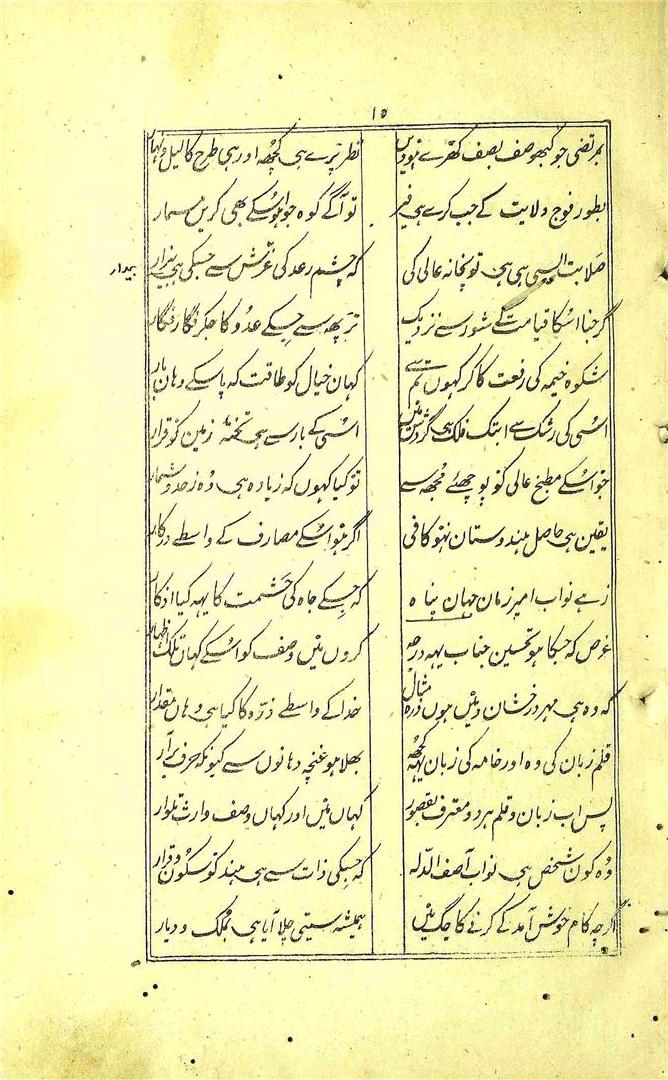 ۱۵
بمرتضی جو کبھو صف بصف کھڑے ہوویں نظر پڑے ہی کچھہ اور ہی طرح کا لیل و نہار
بطور فوج ولایت کے جب کرے ہی فیر تو آگے کوہ جو ہو اُسکے بھی کریں مسمار
صلابت ایسی ہی ہی توپخانہ عالی کی کہ چشم رعد کی غرّش سے جسکی ہی بیزار
بیدار
گرجنا اُسکا قیامت کے شور سے نزدیک تڑپھہ سے جسکے عدُو کا جگر فگار فگار
شکوہ خیمہ کی رفعت کا کر کہوں تم سے کہاں خیال کو طاقت کہ پاسکے وہاں بار
اُسی کی رشک سے ابتک فلک ہی گردش میں اُسی کے بار سے ہی تختۂ زمین کو قرار
جو اُسکے مطبخ عالی کو پوچھئے مُجھہ سے تو کیا کہوں کہ زیادہ ہی وُہ زحد و شمار
یقین ہی حاصل ہندوستان نہو کافی اگر ہو اُسکے مصارف کے واسطے درکار
زہے نواب امیر زمان جہان پناہ کہ جسکے جاہ کی حَشمت کا یہہ کیا اذکار
غرض کہ جسکا ہو تحسین جناب یہہ درجہ کروں میں وصف کو اُسکے کہاں تلک اظہار
کہ وہ ہی مہر درخشان و میں ہوں ذرہ مثال خدا کے واسطے ذرّہ کا کیا ہی وہاں مقدار
قلم زبان کی وہ اور خامہ کی زبان یہہ کچھہ بھلا ہو غنچہ دہانوں سے کیونکہ حرف برآر
پس اب زبان و قلم ہر دو معترف بقصور کہاں میں اور کہاں وصف وارث تلوار
وُہ کون شخص ہی نواب آصف الدّلہ کہ جسکی ذات سے ہی ہند کو سکُون و قرار
اگرچہ کام خوش آمد کے کرنے کا جگ میں ہمیشہ سیتی چلا آیا ہی بمُلک و دیار